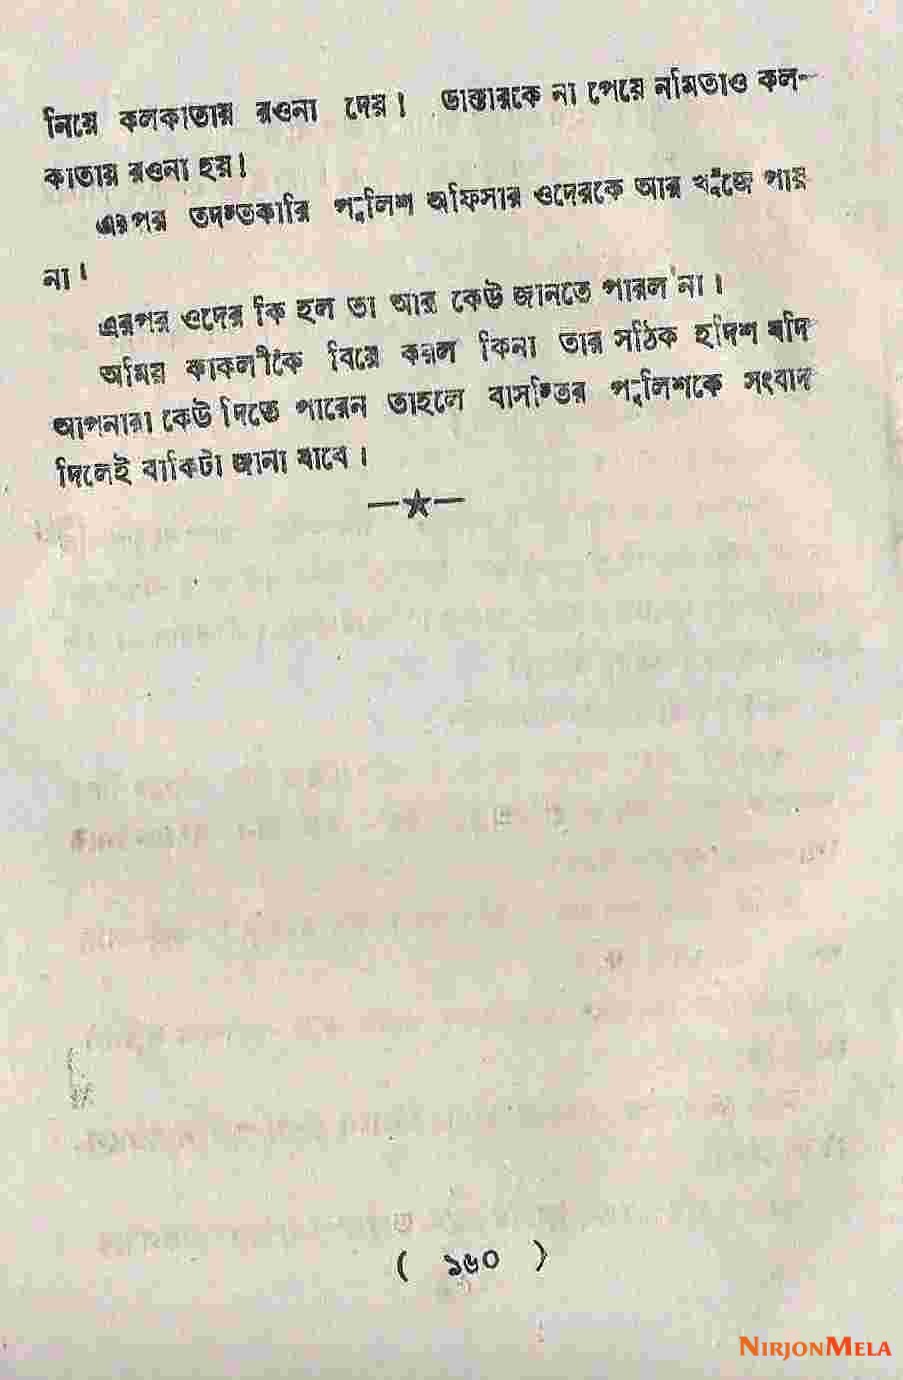 নিয়ে কলকাতায় রওনা দেয়। ডাক্তারকে না পেয়ে নমিতাও কল-
কাতায় রওনা হয়।
এরপর তদন্তকারি পুলিশ অফিসার ওদেরকে আর খুঁজে পায়
না।
এরপর ওদের কি হল তা আর কেউ জানতে পারল না।
অমিয় কাকলীকে বিয়ে করল কিনা তার সঠিক হদিশ যদি
আপনারা কেউ দিতে পারেন তাহলে বাসন্তির পুলিশকে সংবাদ
দিলেই বাকিটা জানা যাবে।
—★—
( ১৬০ )
NIRJONMELA